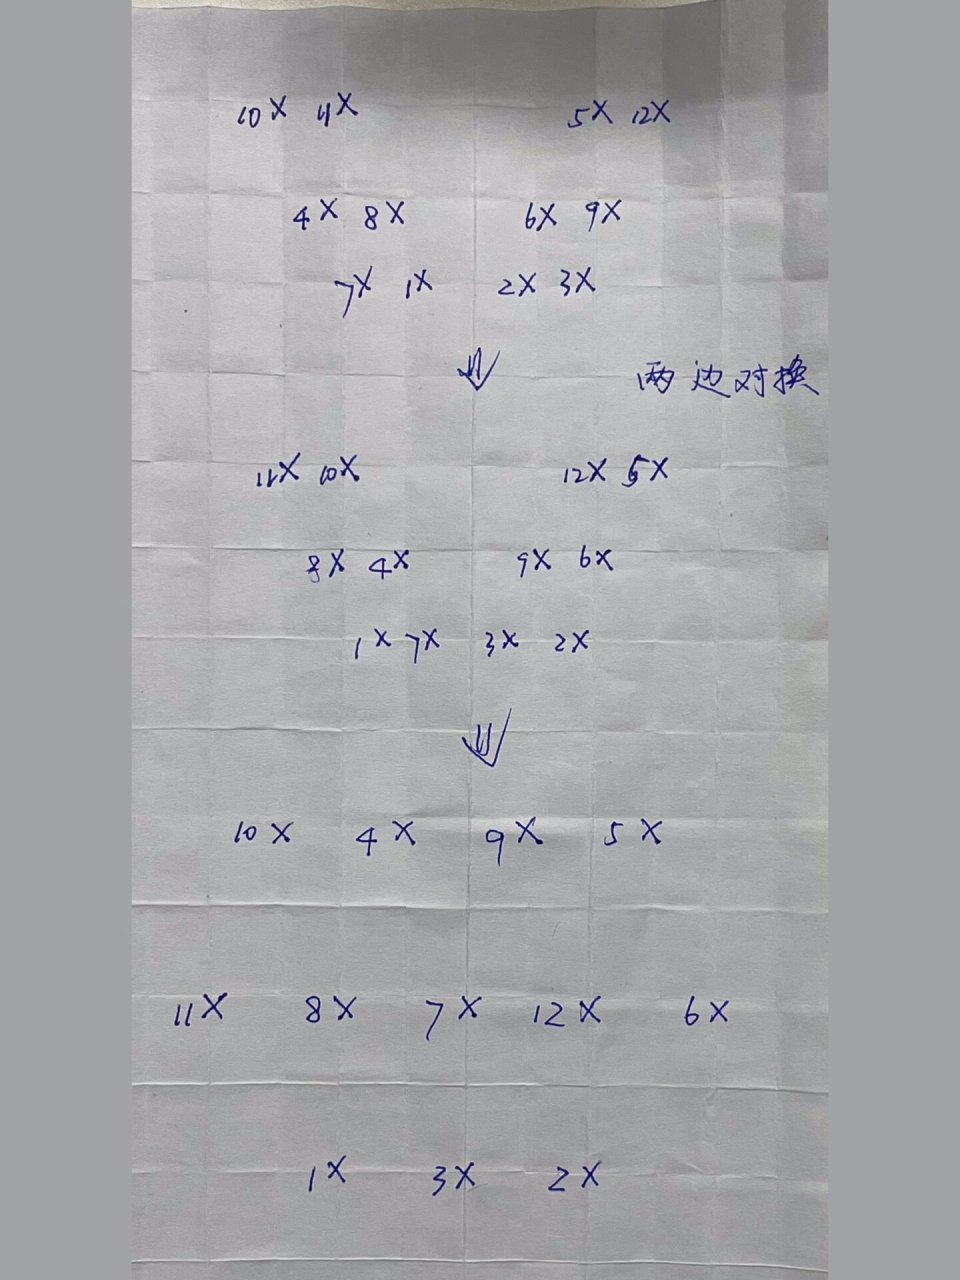 10X 11X 5X 12X
4X 8X 6X 9X
7X 1X 2X 3X
⇓
两边对换
11X 10X 12X 5X
8X 4X 9X 6X
1X 7X 3X 2X
⇓
10X 4X 9X 5X
11X 8X 7X 12X 6X
1X 3X 2X